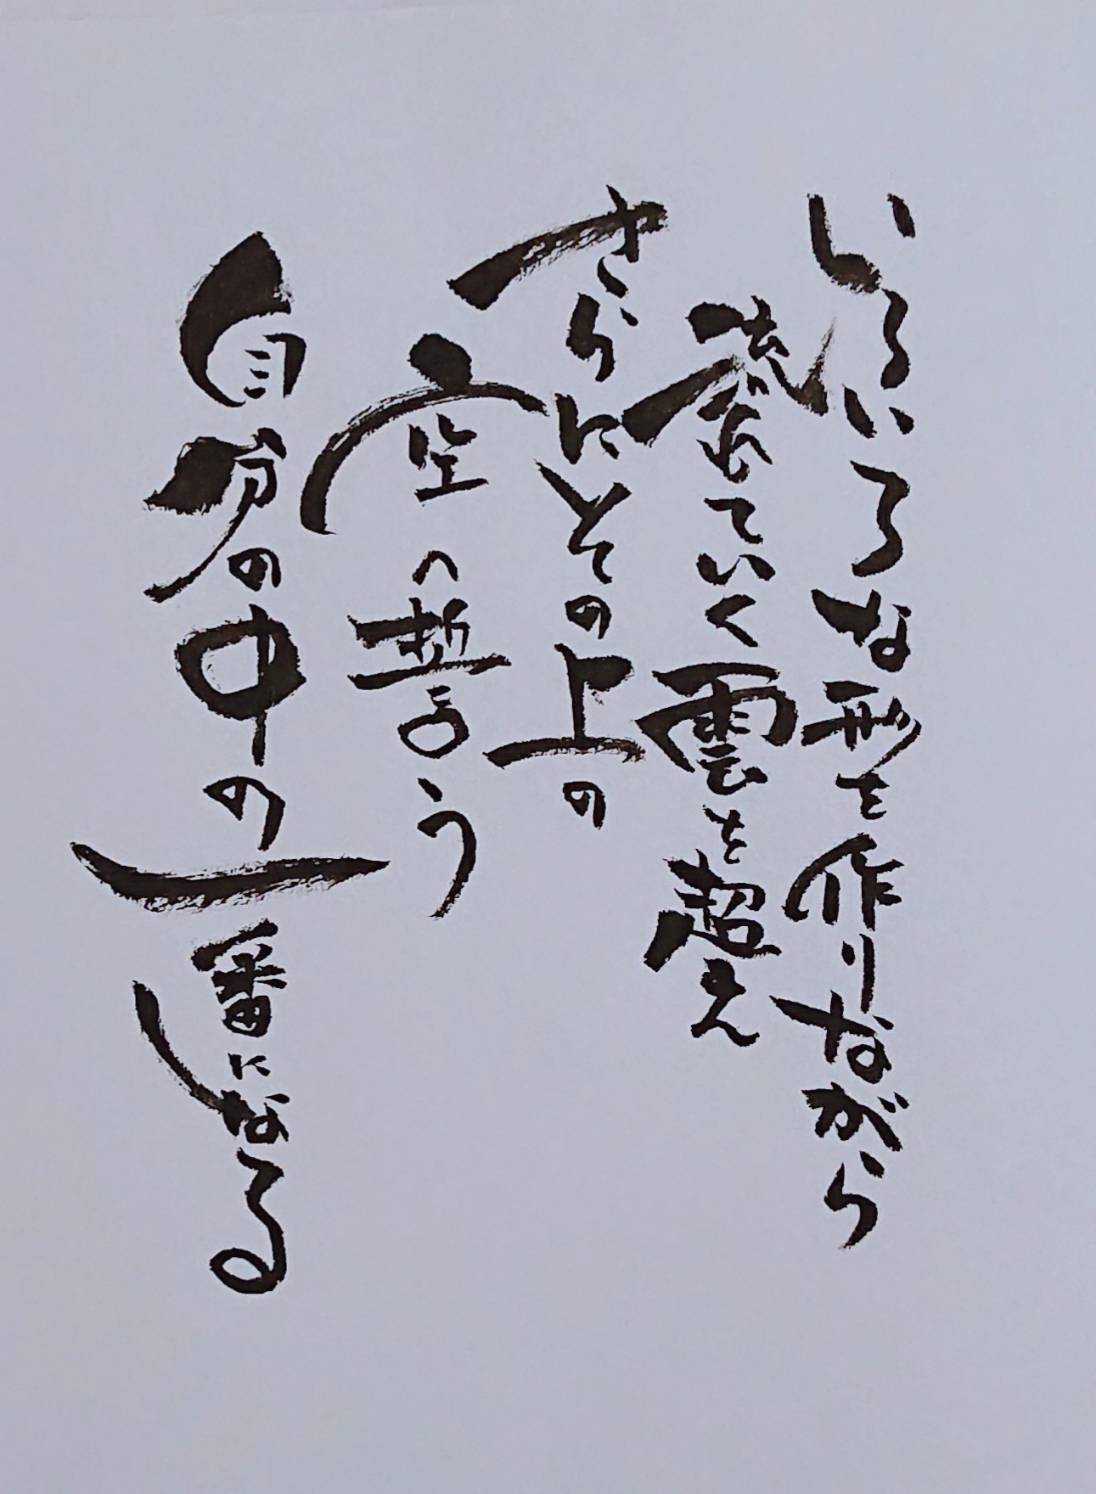 いろいろな形を作りながら
流れていく雲を超え
さらにその上の
空へ誓う
自分の中の一番になる